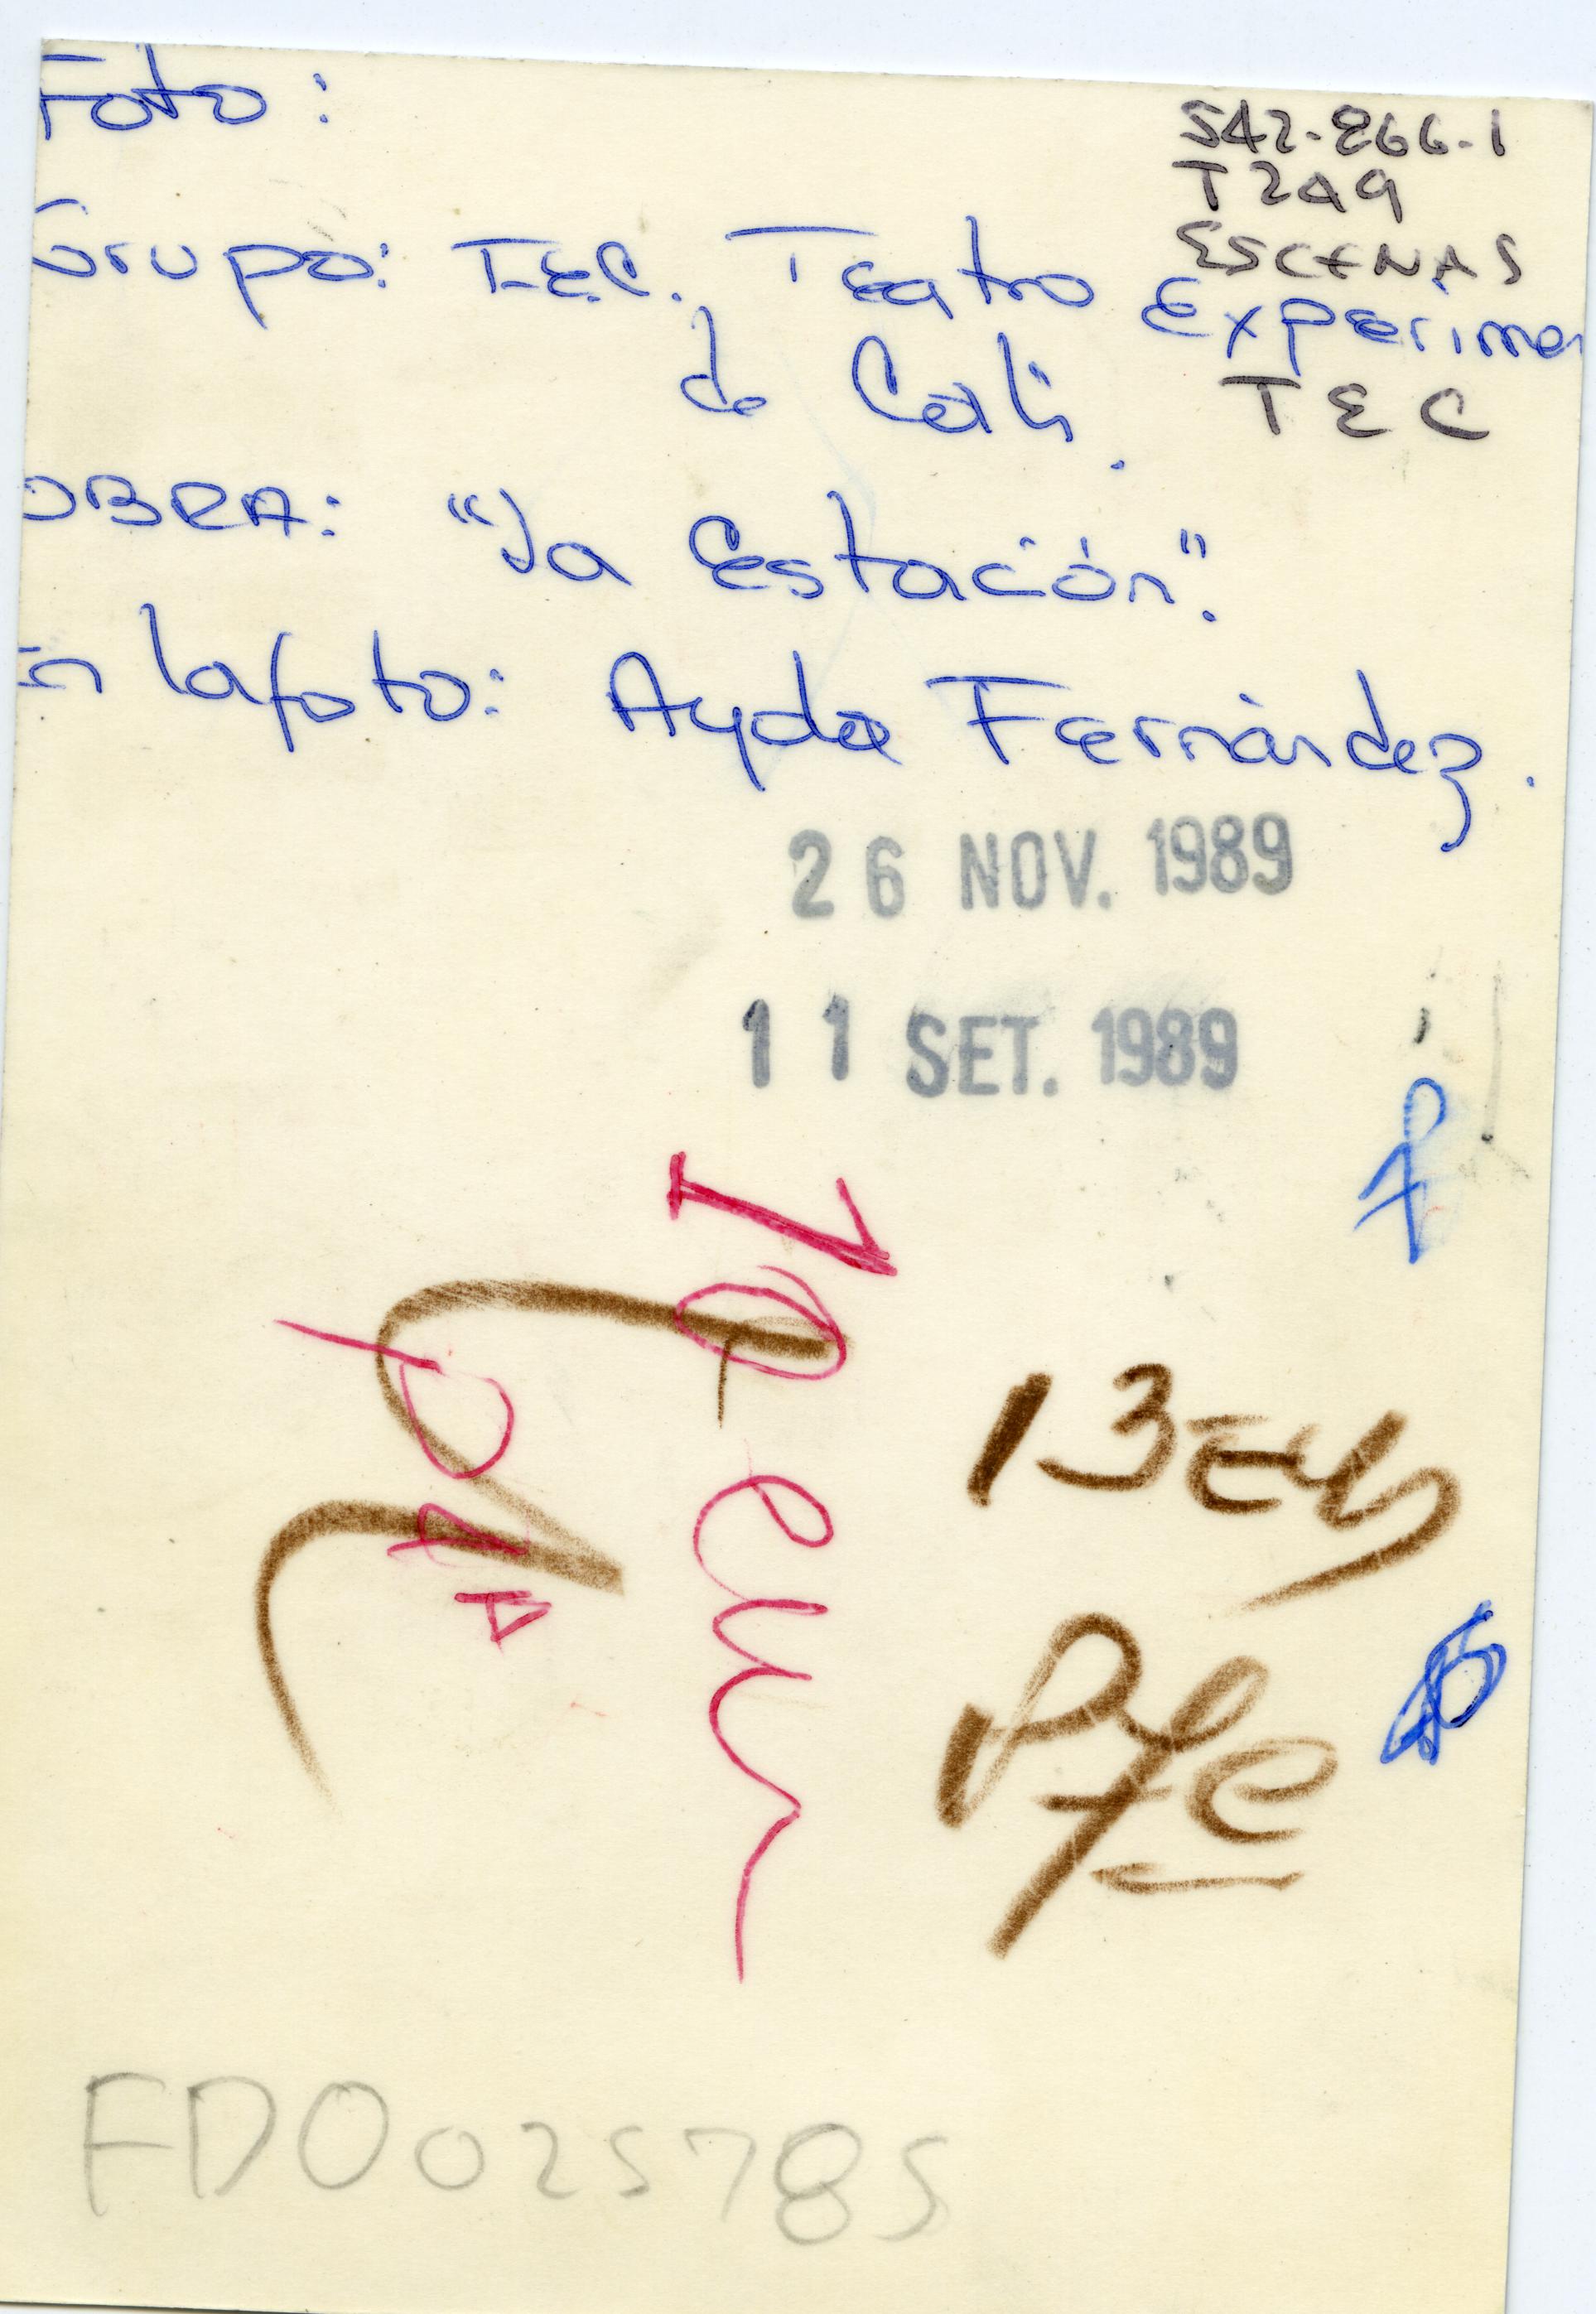 Foto:
542-866-1
T2A9
ESCENAS
Grupo: T.E.C. Teatro Experimen
de Cali.
TEC
OBRA: "La Estación".
En la foto: Ayda Fernández.
26 NOV. 1989
11 SET. 1989
10 em
13 em
FD0025785